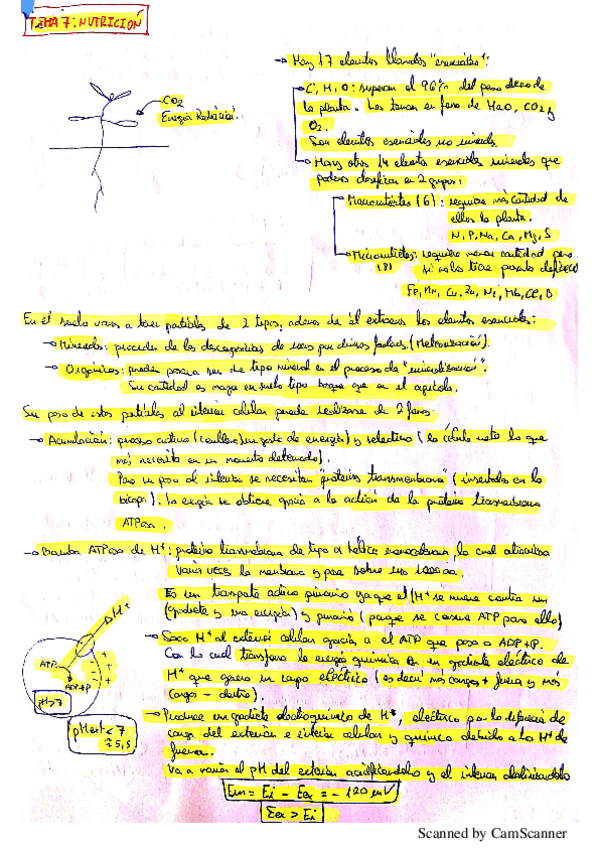 TEMA 7: NUTRICIÓN
→ Hay 17 elementos llamados "esenciales":
CO2
Energía Radiación
→ C, H, O: superan el 96% del peso seco de
la planta. Los toman en forma de H2O, CO2 y
O2.
Son elementos esenciales no minerales
→ Hay otros 14 elementos esenciales minerales que
podemos clasificar en 2 grupos:
Macronutrientes (6): requiere más cantidad de
ellos la planta.
N, P, Na, Ca, Mg, S
Micronutrientes: requiere menor cantidad pero
(8) si no los tiene
Fe, Mn, Cu, Zn, Ni, Mb, Cl, B
En el suelo vamos a tener partículas de 2 tipos, además de él extraemos los elementos esenciales:
→ Minerales: proceden de los de por diversos factores (Meteorización).
→ Orgánicas: pueden pasar a ser de tipo mineral en el proceso de "mineralización".
Su cantidad es mayor en suelo tipo bosque que en el agrícola.
Su paso de estas partículas al interior celular puede realizarse de 2 formas:
→ Acumulación: proceso activo (conlleva un gasto de energía) y selectivo (la célula mete lo que
más necesita en un momento determinado).
Para su paso al interior se necesitan "proteínas transmembrana" (insertadas en la
bicapa). La energía se obtiene gracias a la acción de la proteína transmembrana
ATPasa.
→ Bomba ATPasa de H+: proteína transmembrana de tipo α hélice, la cual atraviesa
varias veces la membrana y pesa sobre unos
Es un transporte activo primario ya que el (H+ se mueve contra un
gradiente y usa energía) y primario (porque se consume ATP para ello)
→ Saca H+ al exterior celular gracias a el ATP que pasa a ADP+P.
Con lo cual transforma la energía química en un gradiente eléctrico de
H+ que genera un campo eléctrico (es decir más cargas + fuera y más
cargas - dentro).
H+
ATP
ADP+P
pH>7
pHext<7
≈5,5
→ Produce un gradiente electroquímico de H+, eléctrico por la diferencia de
carga del exterior e interior celular y químico debido a los H+ de
fuera.
Va a variar el pH del exterior acidificándolo y el interior alcalinizándolo
Em = Ei - Eex = -120 mV
Eex > Ei
Scanned by CamScanner